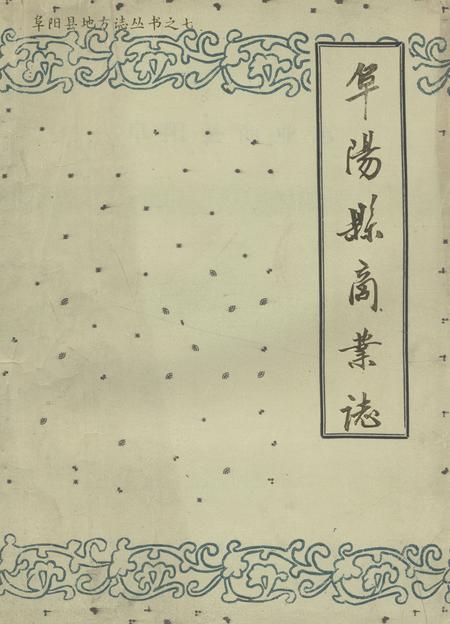 阜阳县地方誌丛书之七
阜陽縣商業誌